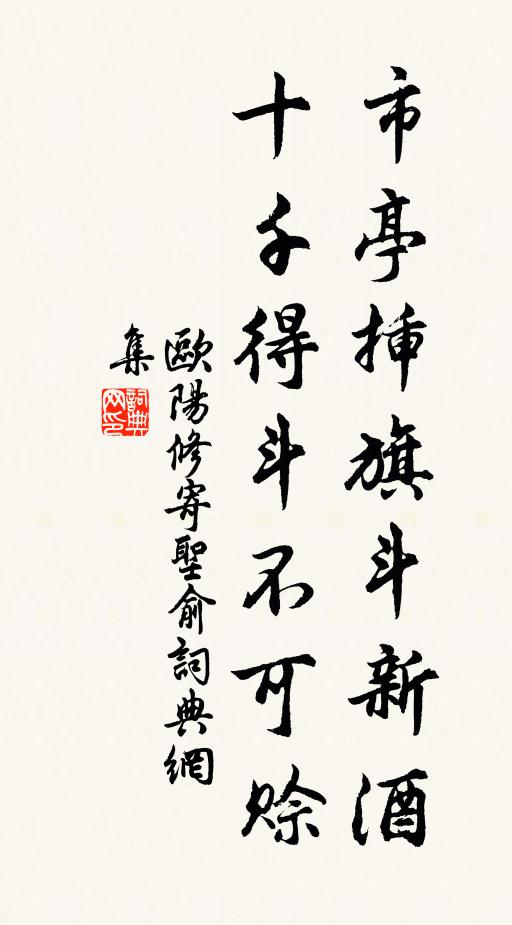 市亭插旗斗新酒
十千得斗不可賒
歐陽修寄聖俞詞典網
集
詞典网印